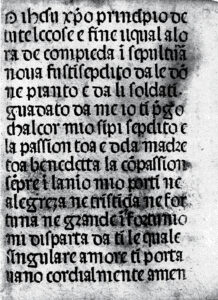 O ihesu xp̄o principio de
tutelecose e fine ilqual alo
ra de compieda i sepultura
noua fusti sepelito da le do
ne pianto e da li soldati
guadato da me io ti p̄go
chal cor mio sipi sepelito e
la passion toa e dela madre
toa benedetta la cōpassion
sepre i lanio mio porti ne
alegreza ne tristicia ne for
tuna ne grande ifortunio
mi disparta da ti le quale
singulare amore ti porta
uano cordialmente amen